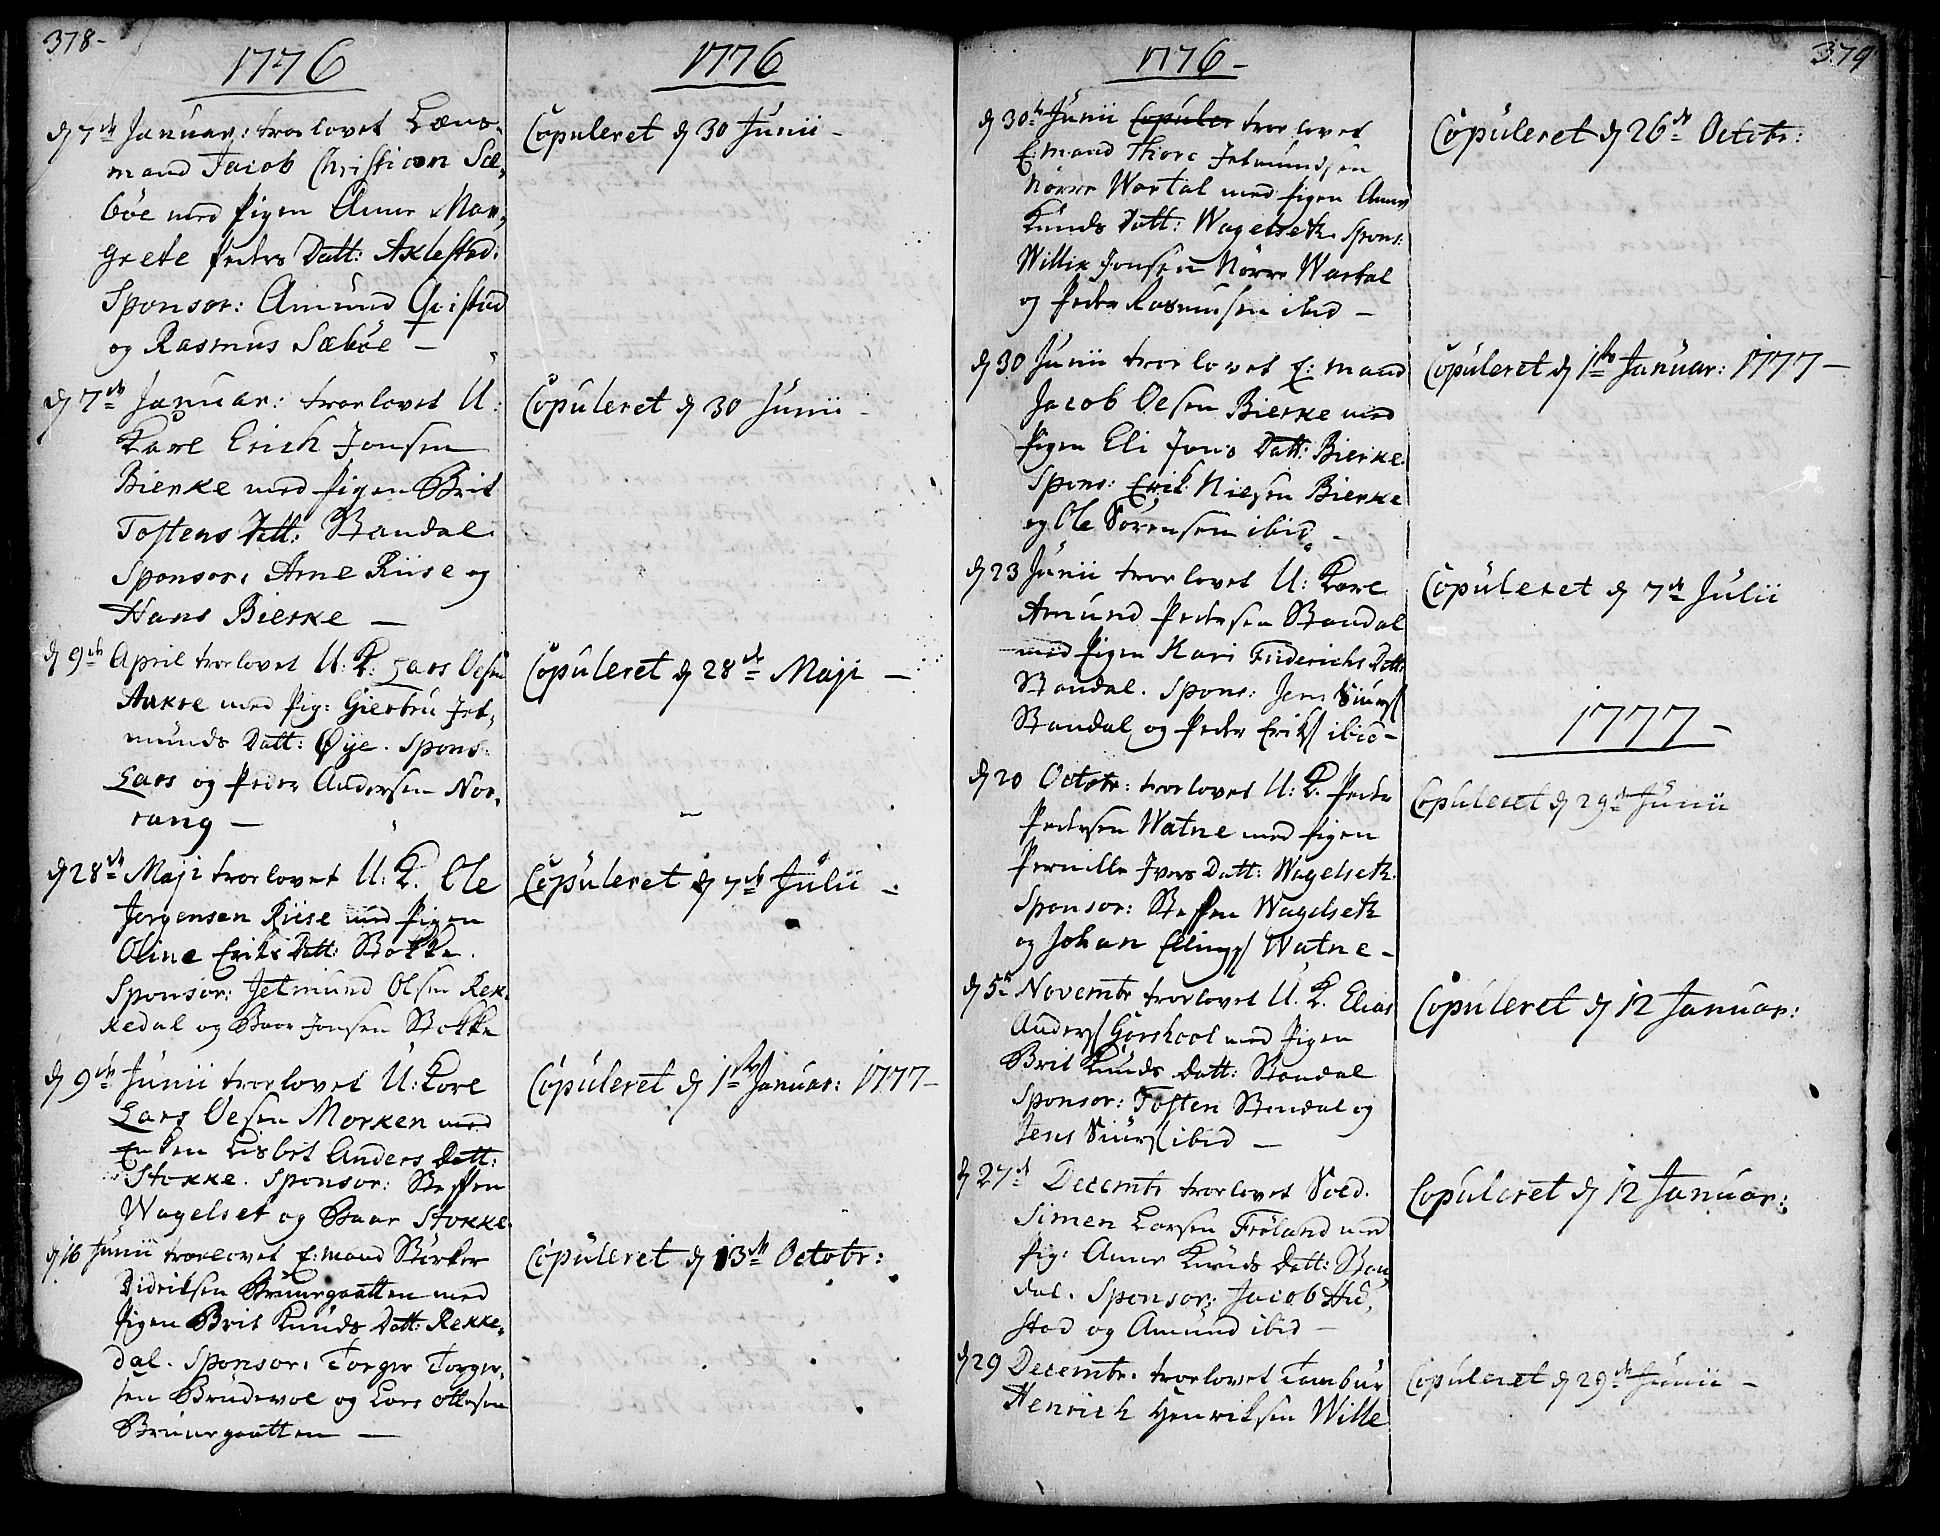 378-
1776
d 7de Januar: troelovet Læns-
mand Jacob Christian Sæ-
böe med Pigen Anne Mar-
grete Peders Datt: Axlestad.
Sponsor: Amund Qvistad
og Rasmus Sæböe —
d 7de Januar: troelovet U:
Karl Erich Jonsen
Bierke med Pigen Brit
Tostens Datt: Standal
Sponsor: Arne Riise og
Hans Bierke —
d 9de April troelovet U: K: Lars Olsen
Aakre med Pig: Giertru Jet-
munds Datt: Øye. Spons:
Lars og Peder Andersen Nor-
rang —
d 28de Maji troelovet U: K. Ole
Jørgensen Riise med Pigen
Oline Eriks Datt: Stokke.
Sponsor: Jetmund Olsen Rek-
kedal og Baar Jonsen Stokke
d 9de Junii troelovet U: Karl
Lars Olsen Morken med
Enken Lisbet Anders Datt:
Stokke. Sponsor: Steffen
Wagelset og Baar Stokke
d 16 Junii troelovet E: mand Størker
Didriksen Bruunegaatten med
Pigen Brit Knuds Datt: Rekke-
dal. Sponsor: Torger Torger-
sen Brudevoe og Lars Ottesen
Bruunegaatten —
1776
Copuleret d 30 Junii —
Copuleret d 30 Junii —
Copuleret d 28de Maji —
Copuleret d 7de Julii —
Copuleret d 1ste Januar: 1777 —
Copuleret d 13de Octobr:
1776 —
d 30te Junii Copuler troelovet
E: mand Thore Jetmundsen
Nörre Wartal med Pigen Anne
Knuds Datt: Wagelsetk. Spons:
Willik Jonsen Nörre Wartal
og Peder Rasmussen ibid —
d 30 Junii troelovet E: mand
Jacob Olsen Bierke med
Pigen Eli Jons Datt: Bierke.
Spons: Erik Nielsen Bierke
og Ole Sörensen ibid —
d 23 Junii troelovet U: Karl
Amund Pedersen Standal
med Pigen Kari Friderichs Datt:
Standal. Spons: Jens Siurs
Standal og Peder Eriks ibid —
d 20 Octobr: troelovet U: K. Peder
Pedersen Watne med Pigen
Pernille Ivers Datt: Wagelsetk.
Sponsor: Steffen Wagelsetk
og Johan Ellings Watne —
d 5te Novembr troelovet U. K. Elias
Anders Giørskool med Pigen
Brit Knuds Datt: Standal
Sponsor: Tosten Standal og
Jens Siurs ibid —
d 27de Decembr troelovet Sold.
Simen Larsen Fröland med
Pig: Anne Knuds Datt: Stan-
dal. Sponsor: Jacob Hu-
stad og Amund ibid —
d 29 Decembr. troelovet Tambur
Henrich Henriksen Wille
379
Copuleret d 26de Octobr:
Copuleret d 1ste Januar: 1777 —
Copuleret d 7de Julii
1777 —
Copuleret d 29de Junii
Copuleret d 12 Januar:
Copuleret d 12 Januar:
Copuleret d 29de Junii —